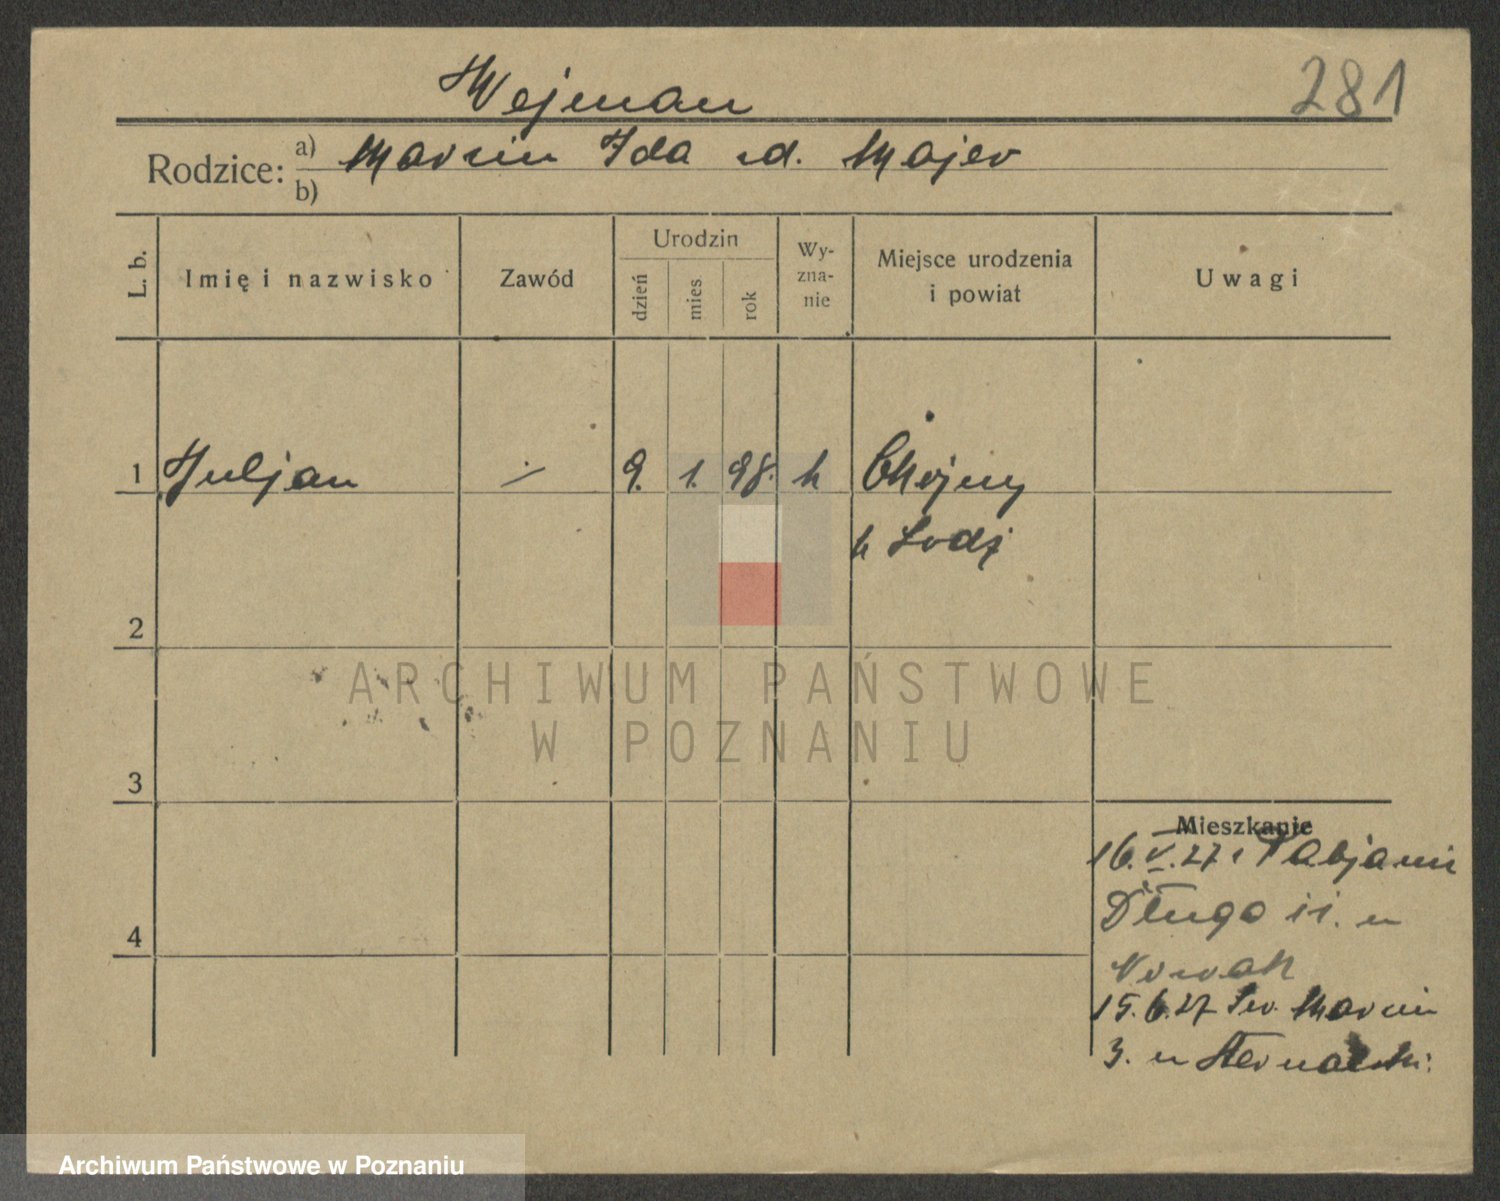 281
Wejman
Rodzice: a) Marcin Ida zd. Majer
b)
L. b. Imię i nazwisko Zawód Urodzin dzień mies rok Wy-zna-nie Miejsce urodzenia i powiat Uwagi
1 Juljan 9. 1. 98. k Chojny
k Lodz
2
ARCHIWUM PAŃSTWOWE
W POZNANIU
3
Mieszkanie
16.V.27 z Pabjanic
Długa 11. u
4
Nowak
15.6.27 Św. Marcin
3. u
Archiwum Państwowe w Poznaniu